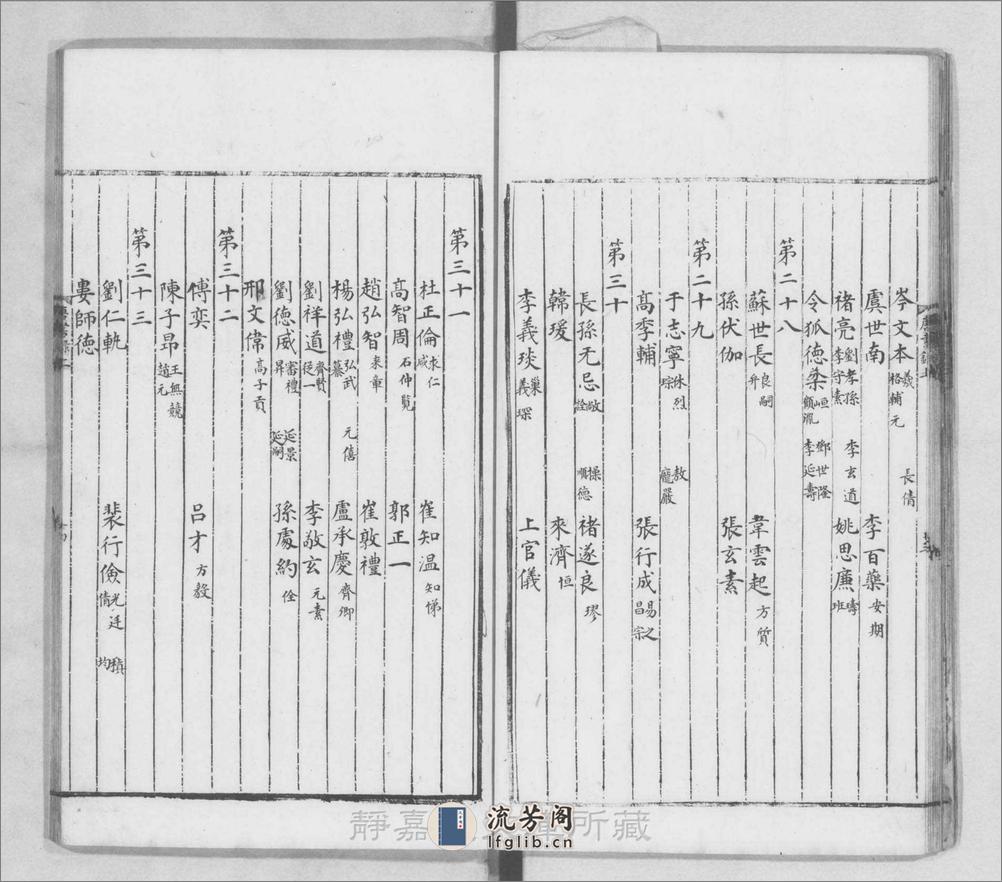 岑文本 羲 格輔元 長倩
虞世南 李百藥 安期
褚亮 劉孝孫 李玄道 李守素 姚思廉 璹 班
令狐德棻 峘 鄧世隆 顧胤 李延壽
第二十八
蘇世長 良嗣 弁 韋雲起 方質
孫伏伽 張玄素
第二十九
于志寧 休烈 敖 琮 龐嚴
高季輔 張行成 易之 昌宗
第三十
長孫无忌 敞 操 詮 順德 褚遂良 璆
韓瑗 來濟 恒
李義琰 巢 義琛 上官儀
第三十一
杜正倫 求仁 咸 崔知溫 知悌
高智周 石仲覽 郭正一
趙弘智 來章 崔敦禮
楊弘禮 弘武 元禧 纂 盧承慶 齊卿
劉祥道 齊賢 從一 李敬玄 元素
劉德威 審禮 延景 昇 延嗣 孫處約 佺
邢文偉 高子貢
第三十二
傅奕 呂才 方毅
陳子昂 王無競 趙元
第三十三
劉仁軌 裴行儉 光廷 稹 倩 均
婁師德
靜嘉 所藏
流芳阁
lfglib.cn